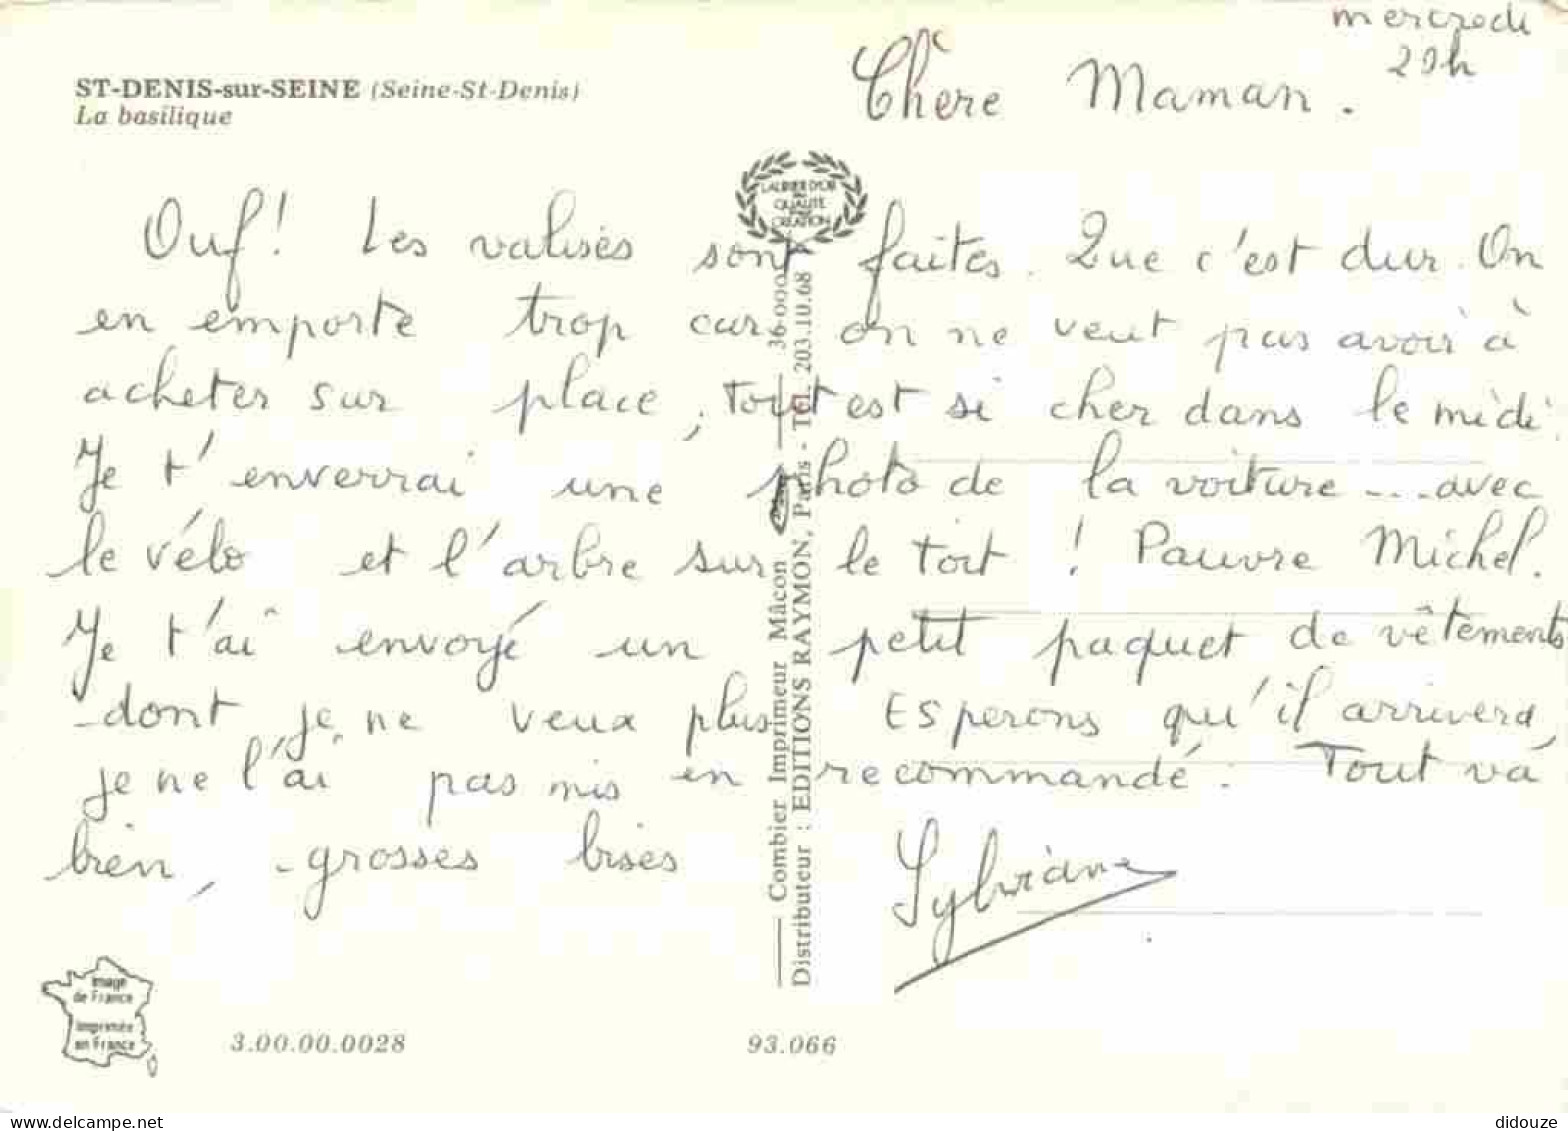 mercredi
20h
ST-DENIS-sur-SEINE (Seine-St-Denis)
La basilique
Chère Maman.
LAURIER D'OR
QUALITE
CREATION
Ouf! Les valises sont faites. Que c'est dur. On
en emporte trop car on ne veut pas avoir à
acheter sur place, tout est si cher dans le midi.
Je t'enverrai une photo de la voiture ... avec
le vélo et l'arbre sur le toit ! Pauvre Michel.
Je t'ai envoyé un petit paquet de vêtements
dont je ne veux plus Esperons qu'il arrivera,
je ne l'ai pas mis en recommandé. Tout va
bien, grosses bises
Sylviane
Combier Imprimeur Mâcon 36.000
Distributeur : EDITIONS RAYMON, Paris - TEL. 203.10.68
Image
de France
Imprimée
en France
3.00.00.0028
93.066
www.delcampe.net
didouze